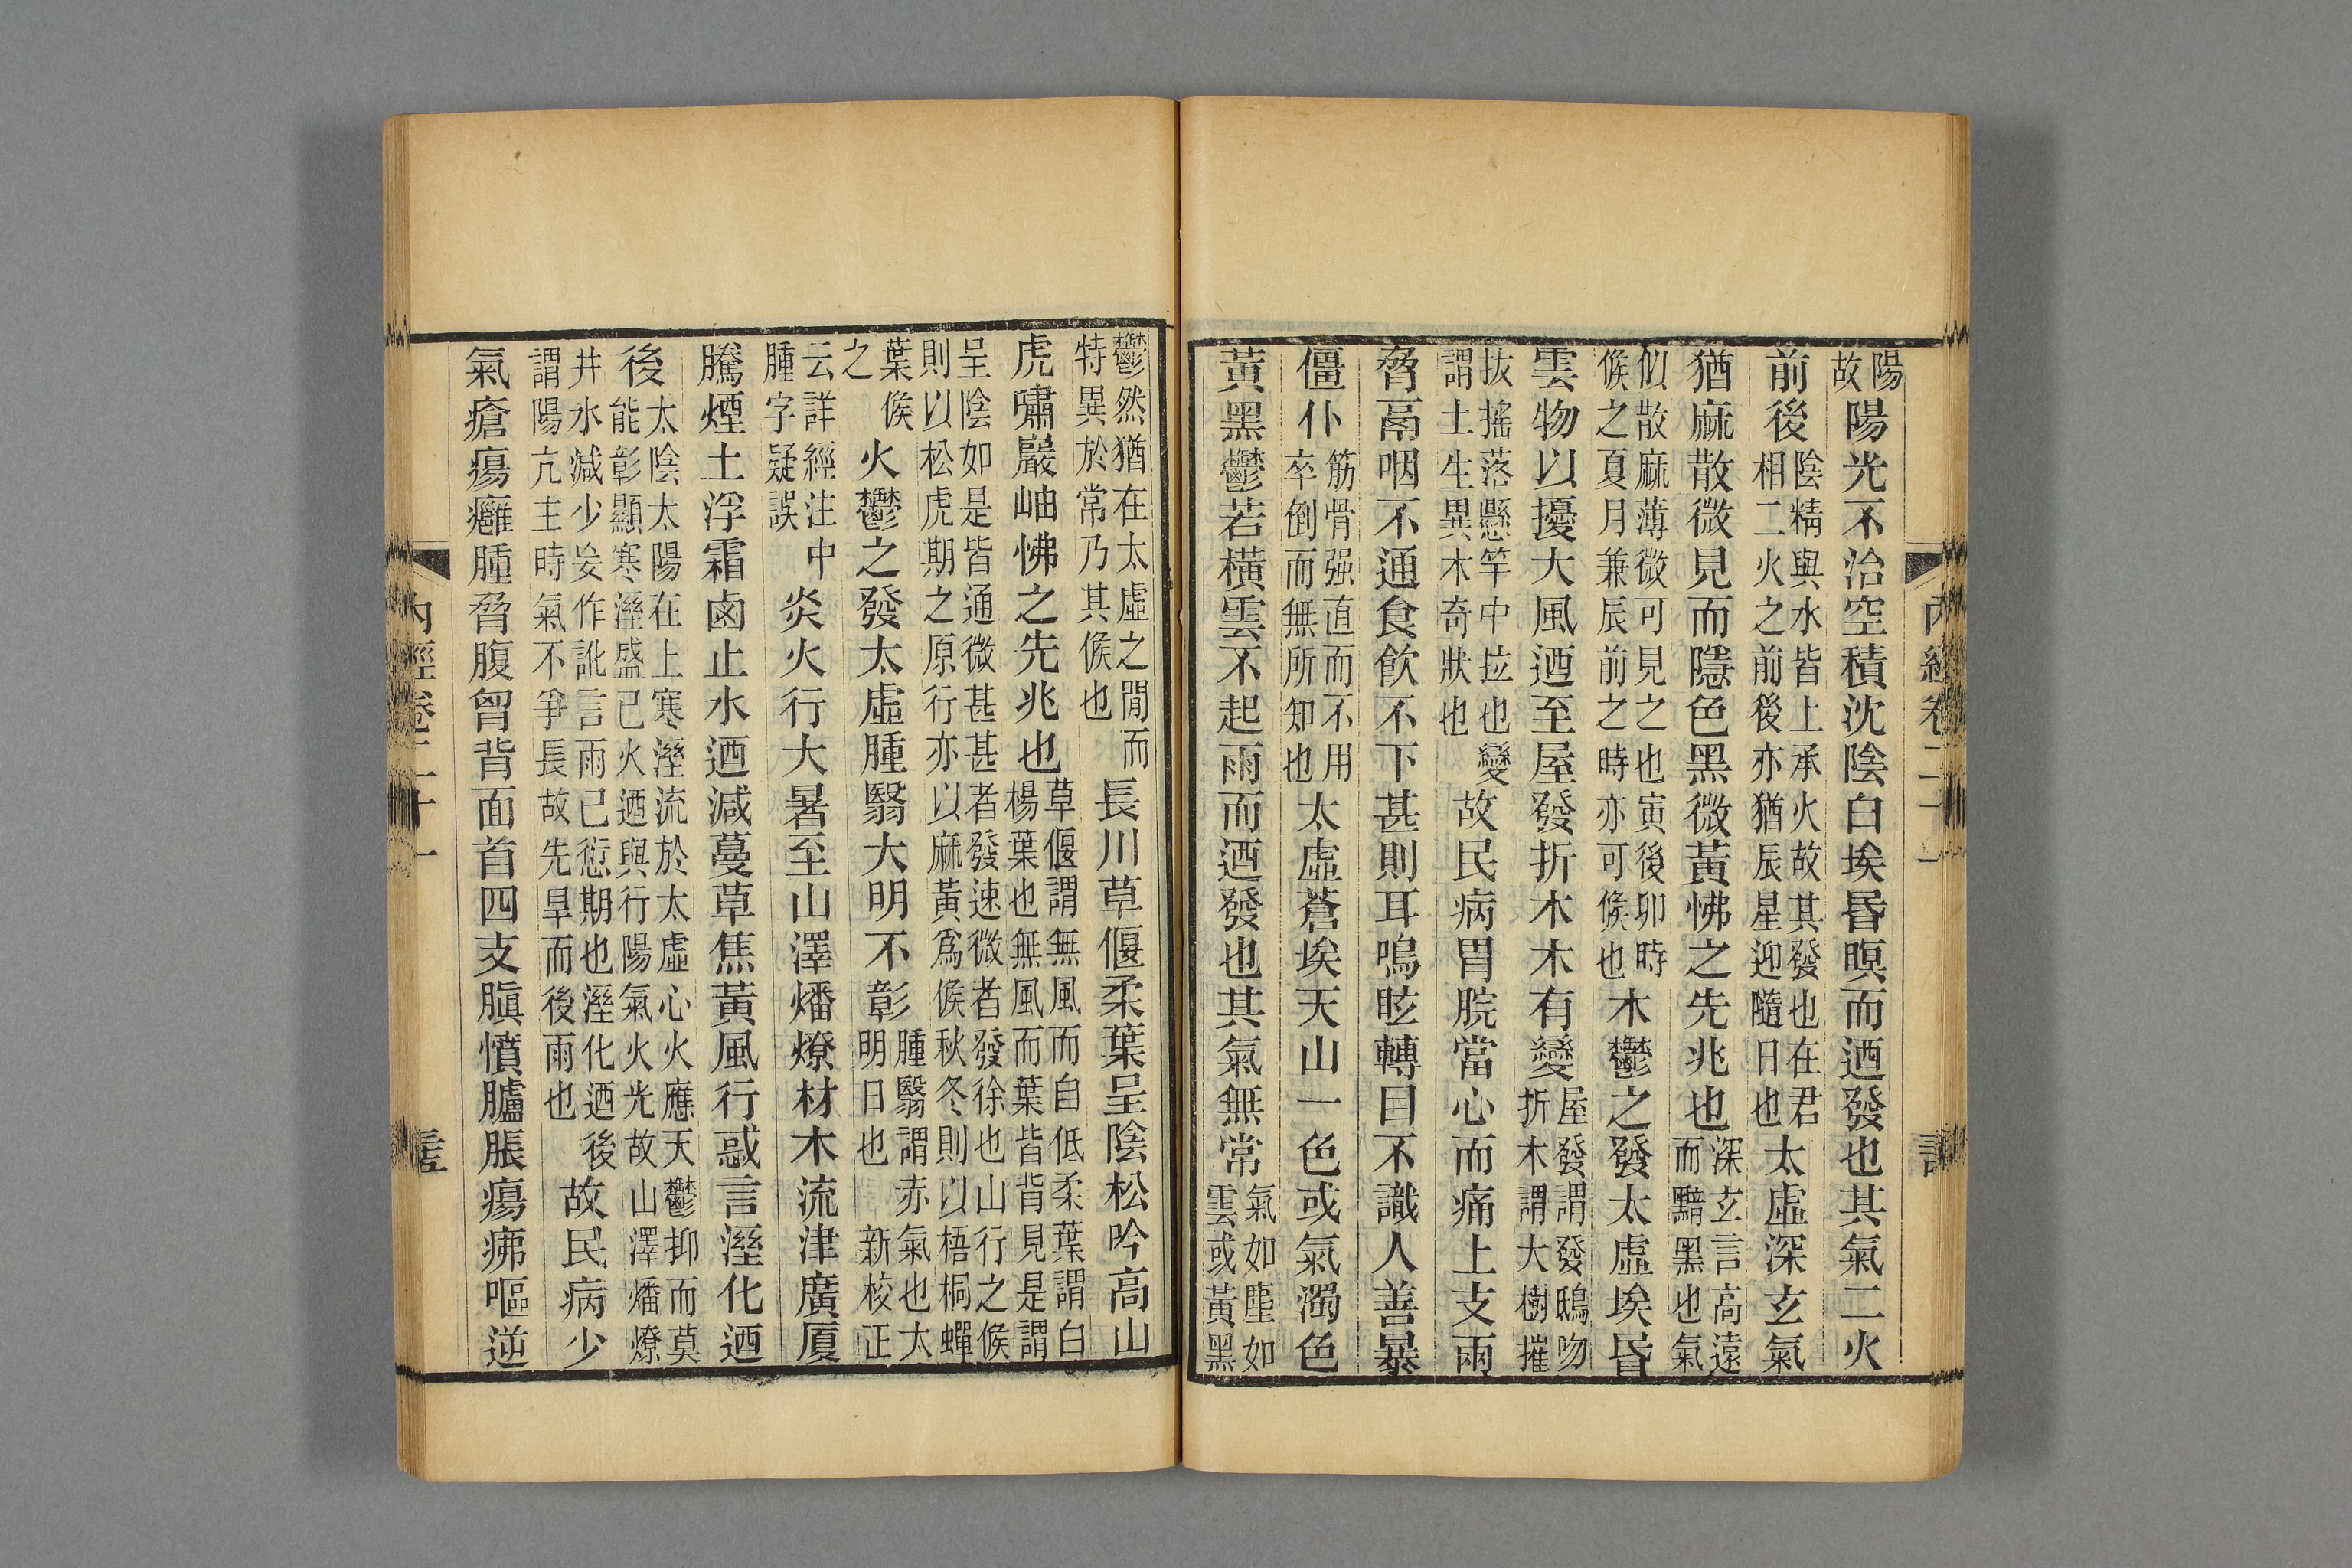 陽故陽光不治空積沈陰白埃昏暝而迺發也其氣二火
前後陰精與水皆上承火故其發也在君相二火之前後亦猶辰星迎隨日也太虛深玄氣
猶麻散微見而隱色黑微黃怫之先兆也深玄言高遠而黯黑也氣
似散麻薄微可見之也寅後卯時候之夏月兼辰前之時亦可候也木鬱之發太虛埃昏
雲物以擾大風迺至屋發折木木有變屋發謂發鴟吻折木謂大樹摧
拔搖落懸竿中拉也變謂土生異木奇狀也故民病胃脘當心而痛上支兩
脅鬲咽不通食飲不下甚則耳鳴眩轉目不識人善暴
僵仆筋骨强直而不用卒倒而無所知也太虛蒼埃天山一色或氣濁色
黃黑鬱若橫雲不起雨而迺發也其氣無常氣如塵如雲或黃黑
鬱然猶在太虛之閒而特異於常乃其候也長川草偃柔葉呈陰松吟高山
虎嘯巖岫怫之先兆也草偃謂無風而自低柔葉謂白楊葉也無風而葉皆背見是謂
呈陰如是皆通微甚甚者發速微者發徐也山行之候則以松虎期之原行亦以麻黃爲候秋冬則以梧桐蟬
葉候之火鬱之發太虛腫翳大明不彰腫翳謂赤氣也太明日也新校正
云詳經注中腫字疑誤炎火行大暑至山澤燔燎材木流津廣厦
騰煙土浮霜鹵止水迺減蔓草焦黃風行惑言溼化迺
後太陰太陽在上寒溼流於太虛心火應天鬱抑而莫能彰顯寒溼盛已火迺與行陽氣火光故山澤燔燎
井水減少妄作訛言雨已愆期也溼化迺後謂陽亢主時氣不爭長故先旱而後雨也故民病少
氣瘡瘍癰腫脅腹曾背面首四支䐜憤臚脹瘍疿嘔逆
內經卷二十一